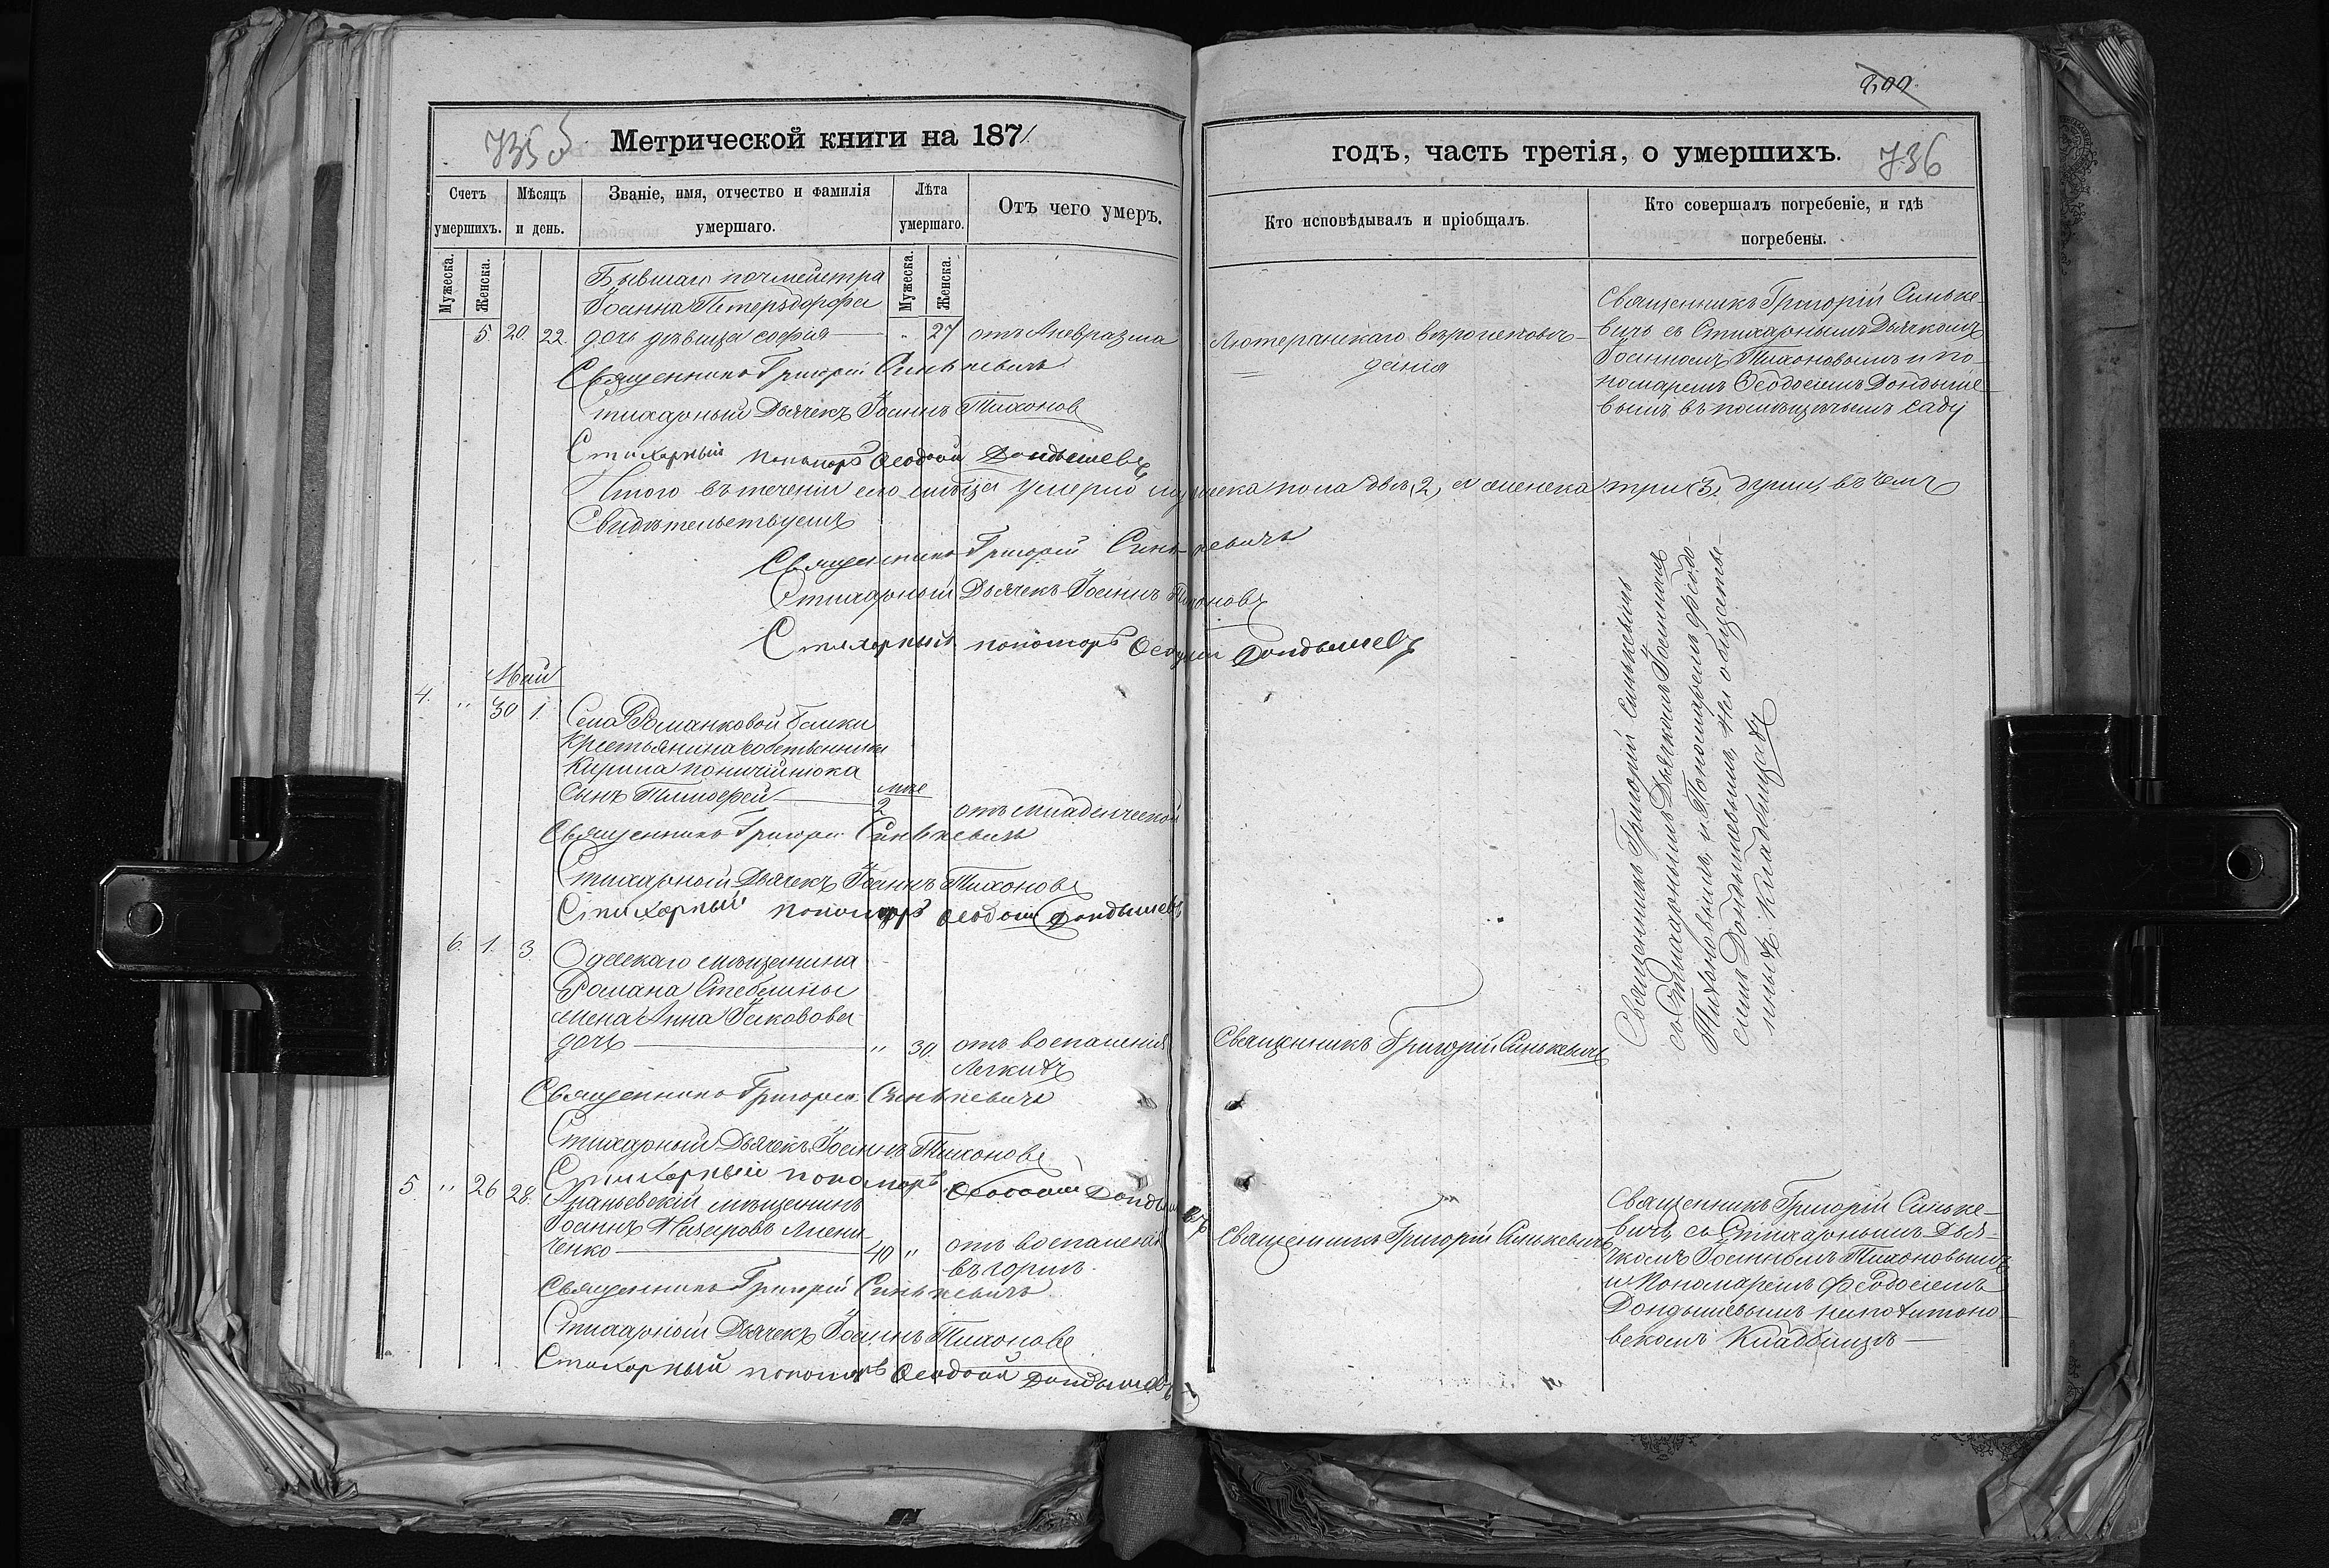 735 об
Метрической книги на 1871
Счетъ умершихъ.
Мѣсяцъ и день.
Званіе, имя, отчество и фамилія умершаго.
Лѣта умершаго.
Отъ чего умеръ.
Мужеска.
Женска.
Мужеска.
Женска.
Бывшаго почмейстра
Іоанна Петерздорфа
5. 20. 22. дочь дѣвица Софія — " 27 отъ Аневризма
Священникъ Григорій Синькевичъ
Стихарный Дьячекъ Іоаннъ Тихонов
Стихарный пономарь Ѳеодосій Дондышевъ
Итого въ теченіи сего мѣсяца умерло мужеска пола два, 2, а женска три (3) души, въ чемъ
Свидѣтельствуемъ
Священникъ Григорій Синькевичъ
Стихарный Дьячекъ Іоаннъ Тихоновъ
Стихарный пономарь Ѳеодосій Дондышевъ
Май
4. " 30 1. Села Романковой балки
крестьянина собственника
Кирила
сынъ Тимофей — мце 2 отъ младенческой
Священникъ Григорій Синькевичъ
Стихарный Дьячекъ Іоаннъ Тихоновъ
Стихарный пономарь Ѳеодосій Дондышевъ
6. 1. 3. Одесскаго мѣщанина
Романа Стеблины
жена Анна Іаковова
дочь — " 30. отъ воспаленія
легкихъ
Священникъ Григорій Синькевичъ
Стихарный Дьячекъ Іоаннъ Тихоновъ
Стихарный пономарь Ѳеодосій Дондышевъ
5. " 26 28. Ананьевскій мѣщанинъ
Іоаннъ Назаровъ
ченко — 40 " отъ воспаленія
въ горлѣ.
Священникъ Григорій Синькевичъ
Стихарный Дьячекъ Іоаннъ Тихоновъ
Стихарный пономарь Ѳеодосій Дондышевъ
годъ, часть третія, о умершихъ.
736
Кто исповѣдывалъ и пріобщалъ.
Кто совершалъ погребеніе, и гдѣ погребены.
Лютеранскаго вѣроисповѣ-
данія
Священникъ Григорій Синьке-
вичъ съ Стихарнымъ Дьячкомъ
Іоанномъ Тихоновымъ и по-
номаремъ Ѳеодосіемъ Дондыше-
вымъ въ помѣщичьемъ саду
Священникъ Григорій Синькевичъ
съ Стихарнымъ Дьячкомъ Іоанномъ
Тихоновымъ, и Пономаремъ Феодо-
сіемъ Дондышевымъ, на обществе-
нныхъ Кладбищахъ
Священникъ Григорій Синькевичъ
Священникъ Григорій Синькевичъ
Священникъ Григорій Синьке-
вичъ, съ Стихарнымъ Дья-
чкомъ Іоанномъ Тихоновымъ
и Пономаремъ Феодосіемъ
Дондышевымъ
Кладбищѣ —